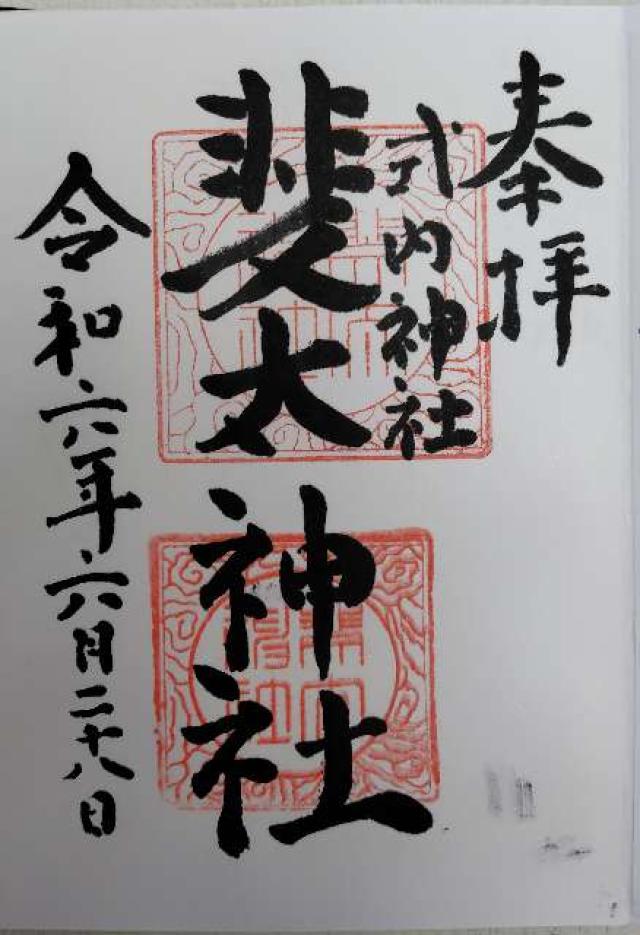 奉拝
式内神社
斐太神社
令和六年六月二十八日